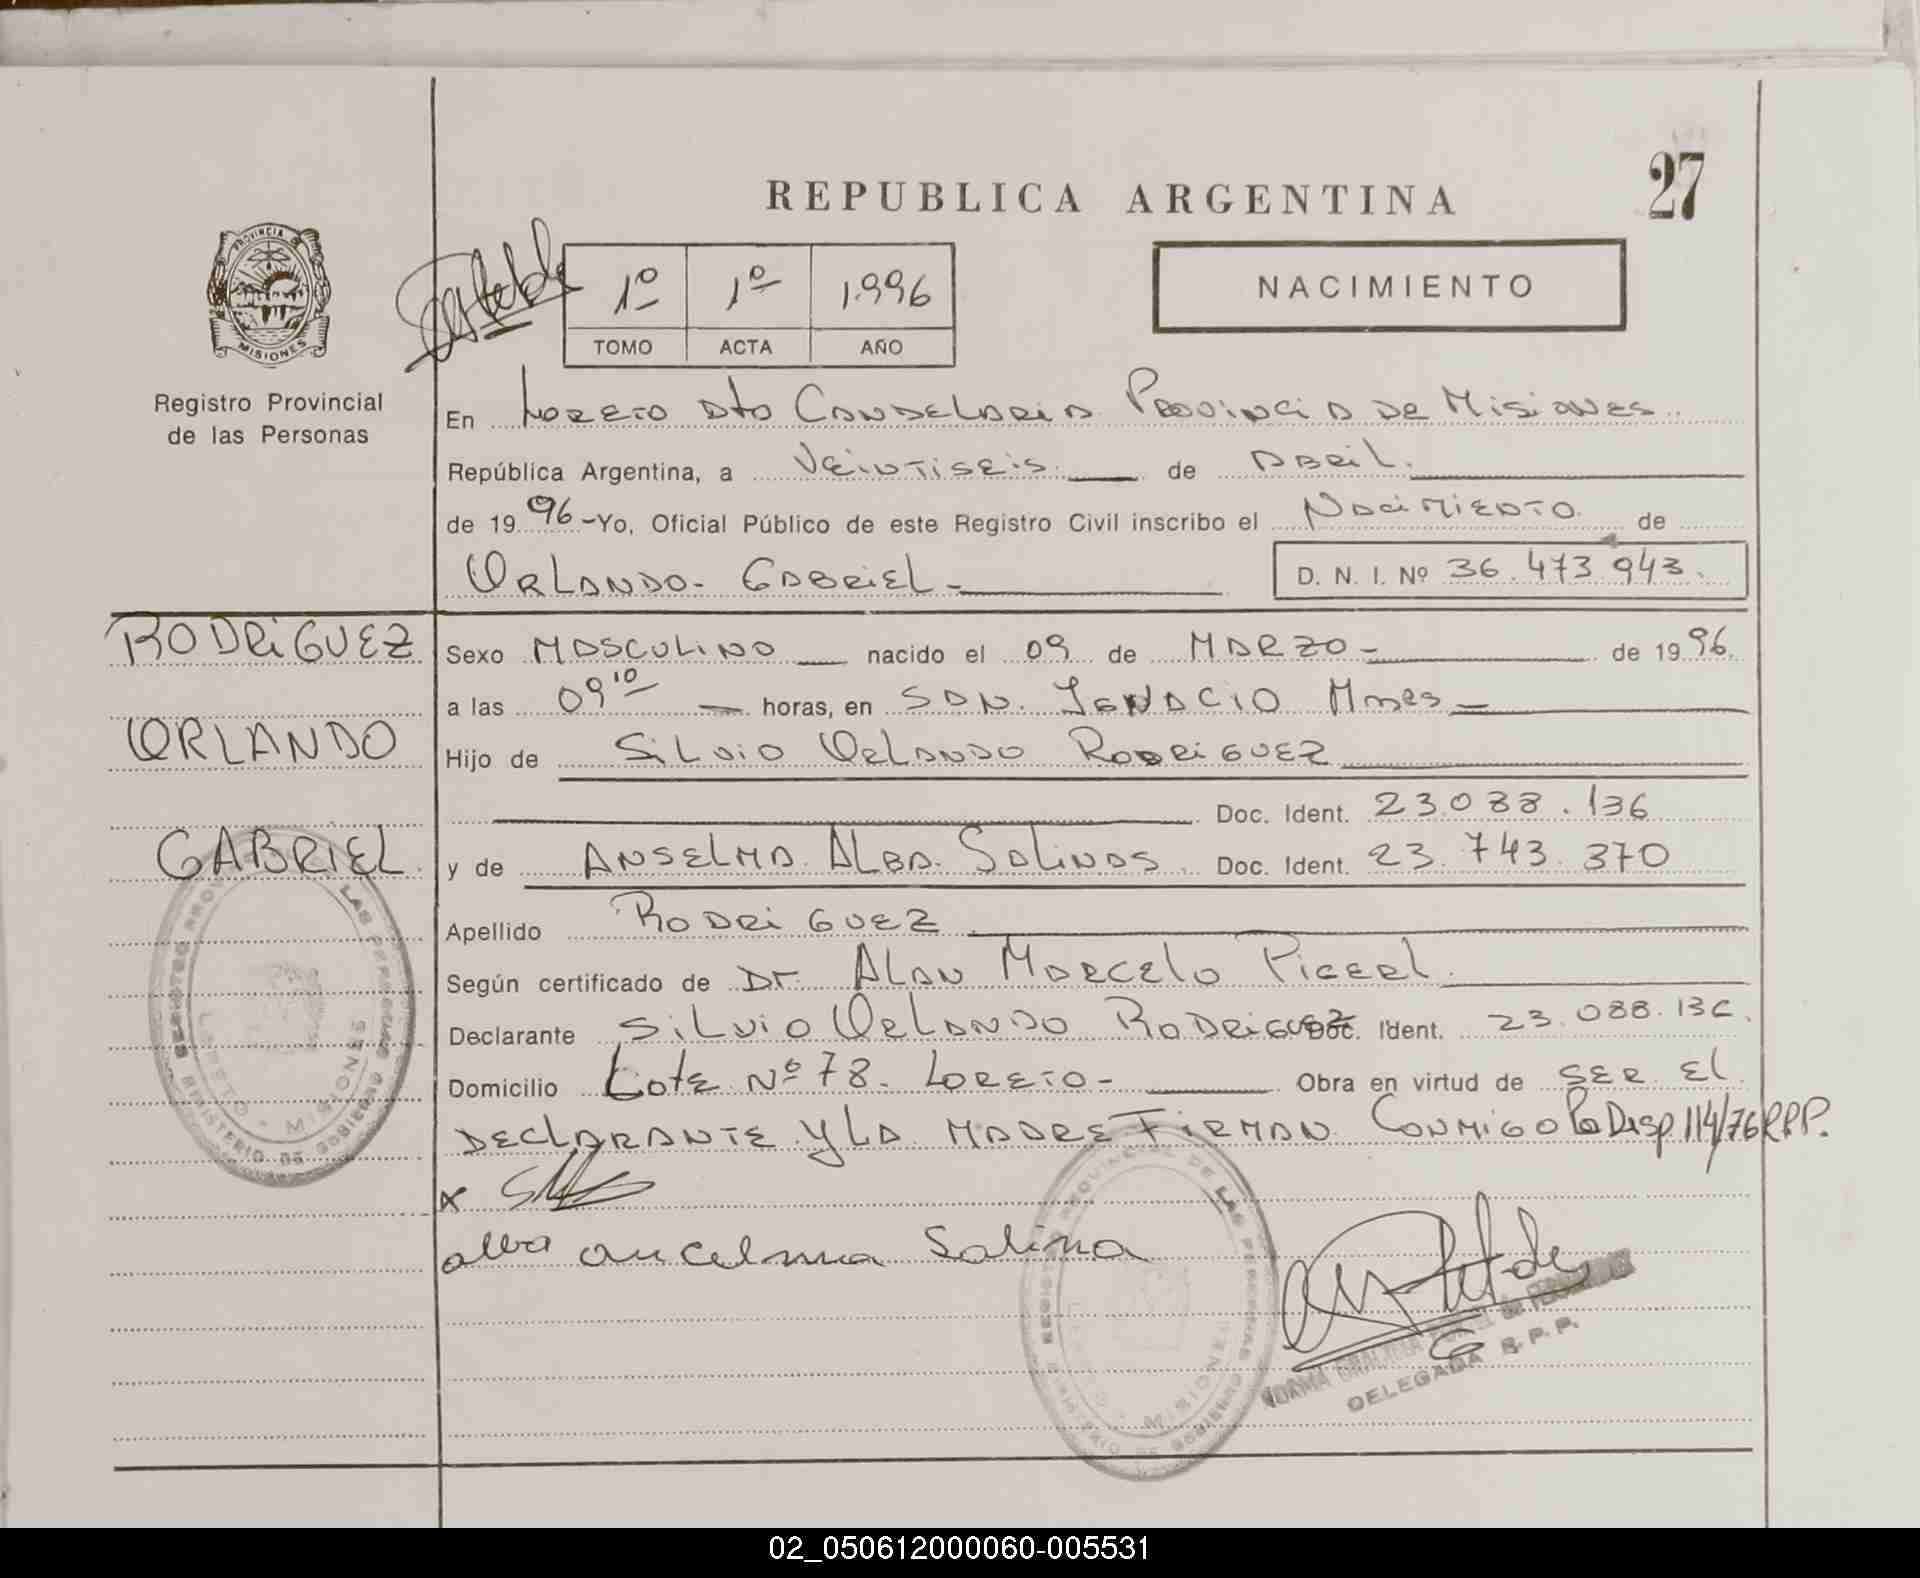 27
REPUBLICA ARGENTINA
NACIMIENTO
1º 1º 1996
TOMO ACTA AÑO
PROVINCIA DE
MISIONES
Registro Provincial
de las Personas
En Loreto Dto Candelaria Provincia de Misiones
República Argentina, a Veintiseis de Abril.
de 1996-Yo, Oficial Público de este Registro Civil inscribo el Nacimiento de
Orlando- Gabriel- D. N. I. Nº 36.473.943.
RODRIGUEZ
ORLANDO
GABRIEL.
Sexo Masculino nacido el 09 de Marzo- de 1996.
a las 09¹⁰ horas, en San. Ignacio Mnes
Hijo de Silvio Orlando Rodriguez
Doc. Ident. 23.088.136
y de Anselma. Alba. Salinas Doc. Ident. 23.743.370
Apellido Rodriguez
Según certificado de Dr. Alan Marcelo
Declarante Silvio Orlando Rodriguez Doc. Ident. 23.088.136.
Domicilio Lote Nº 78. Loreto- Obra en virtud de ser el
declarante y la madre Firman Conmigo Disp 114/76 R.P.P.
x
alba ancelma Salina
REGISTRO PROVINCIAL DE LAS PERSONAS
MINISTERIO DE GOBIERNO
LORETO - MISIONES
REGISTRO PROVINCIAL DE LAS PERSONAS
MINISTERIO DE GOBIERNO
MISIONES
NORMA
DELEGADA R.P.P.
02_050612000060-005531